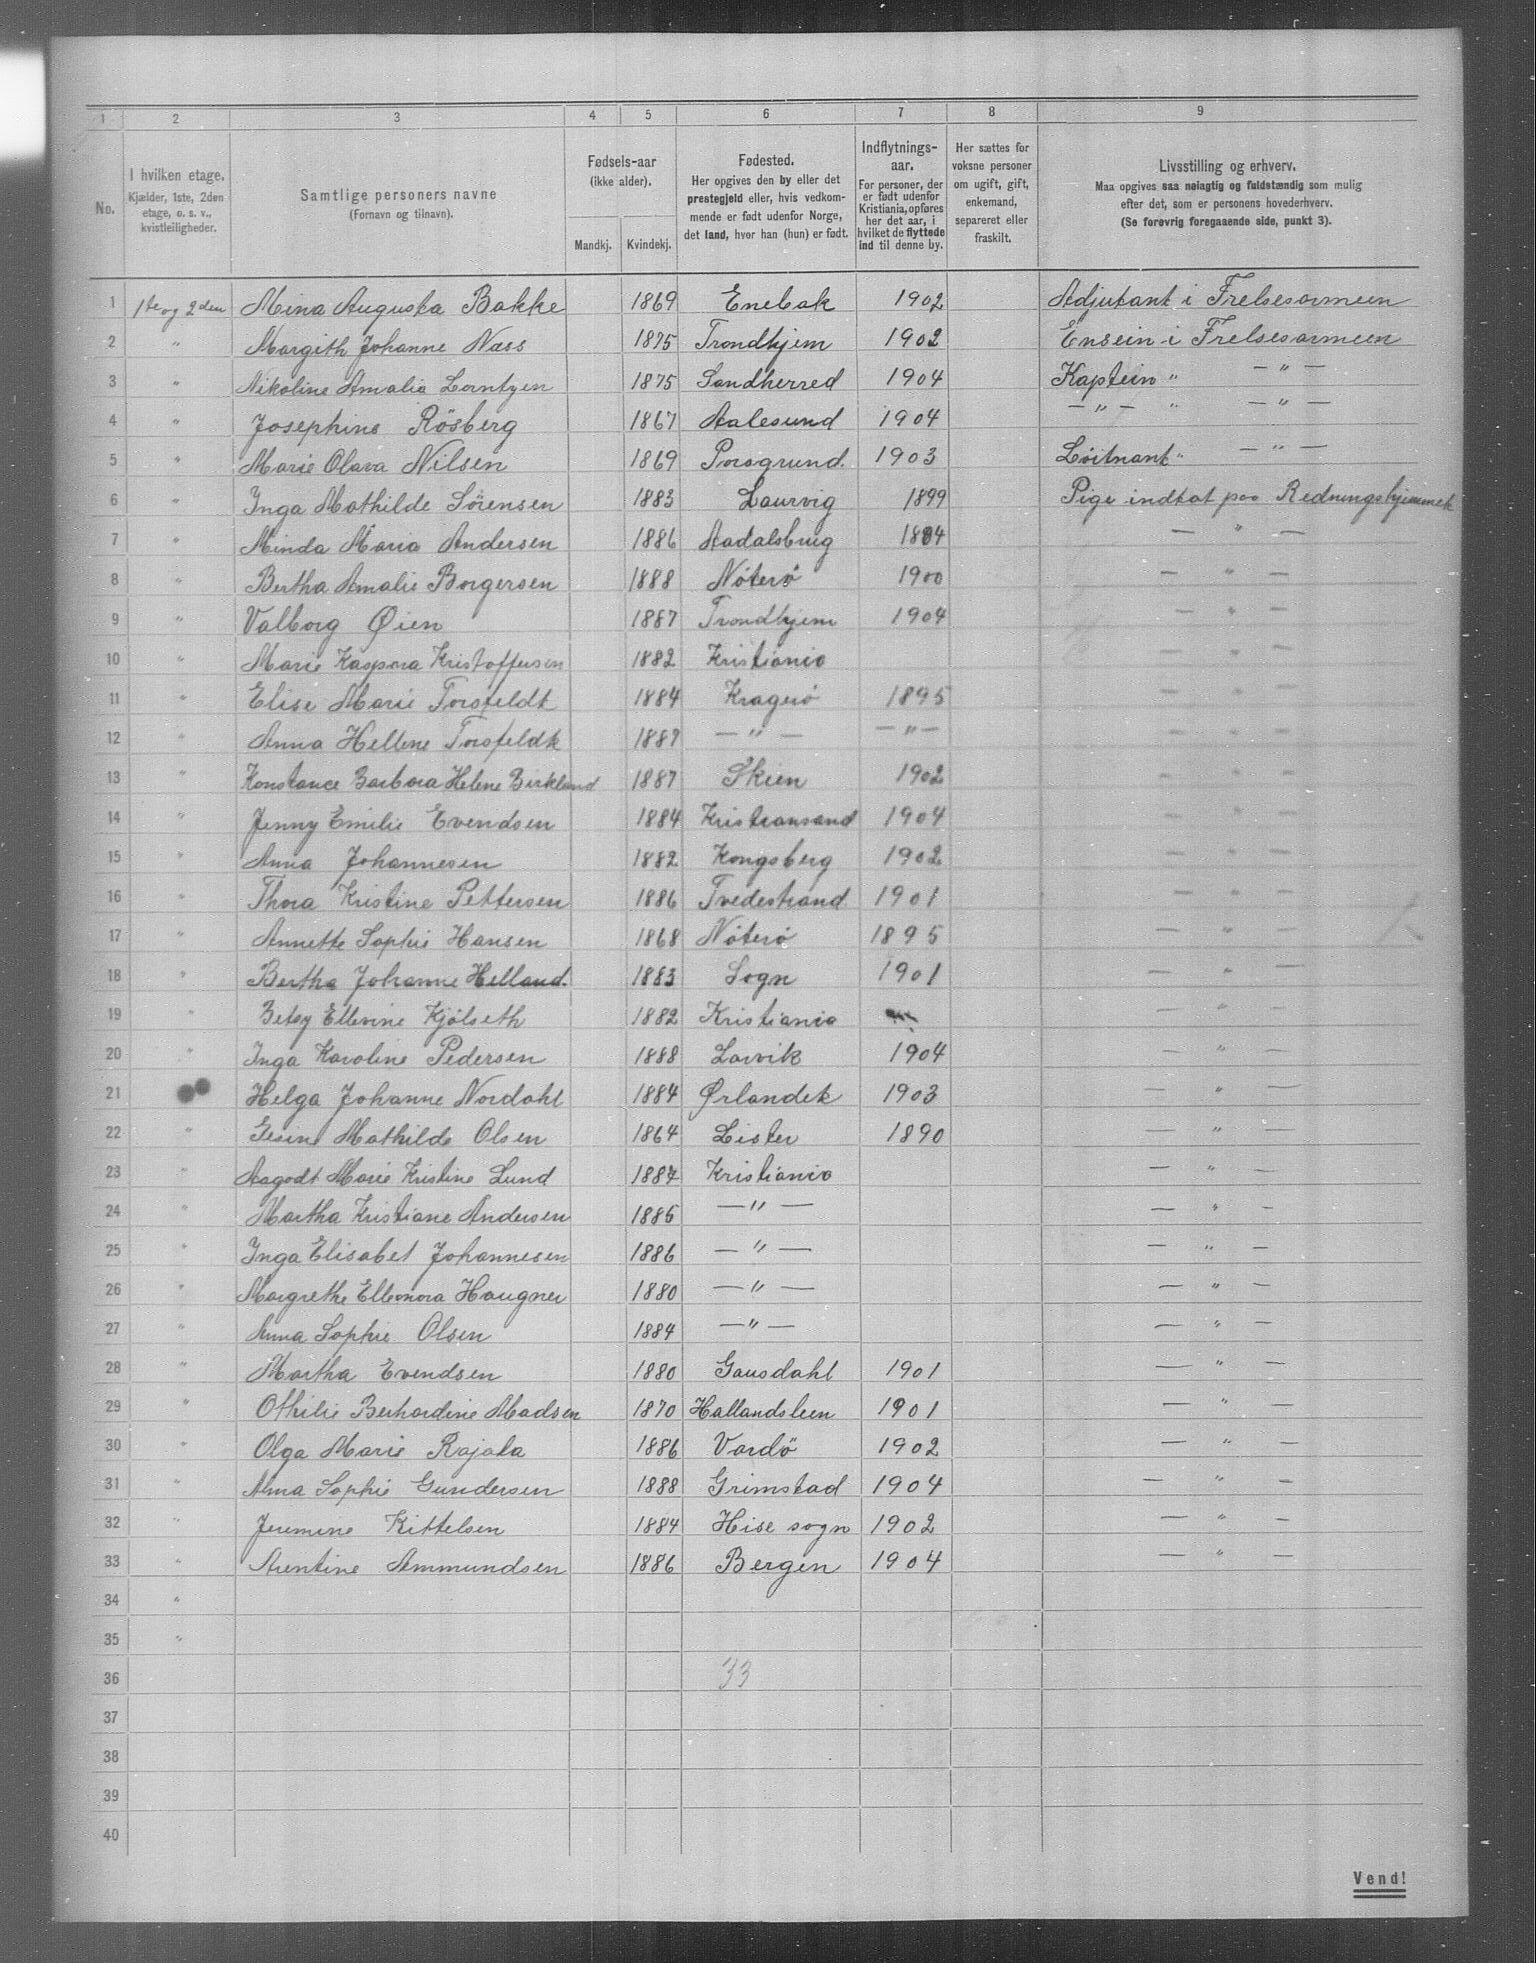 1 2 3 4 5 6 7 8 9
No. I hvilken etage. Kjælder, 1ste, 2den etage, o. s. v., kvistleiligheder.
Samtlige personers navne (Fornavn og tilnavn).
Fødsels-aar (ikke alder). Mandkj. Kvindekj.
Fødested. Her opgives den by eller det prestegjeld eller, hvis vedkommende er født udenfor Norge, det land, hvor han (hun) er født.
Indflytnings-aar. For personer, der er født udenfor Kristiania, opføres her det aar, i hvilket de flyttede ind til denne by.
Her sættes for voksne personer om ugift, gift, enkemand, separeret eller fraskilt.
Livsstilling og erhverv. Maa opgives saa nøiagtig og fuldstændig som mulig efter det, som er personens hovederhverv. (Se forøvrig foregaaende side, punkt 3).
1 1ste og 2den Mina Augusta Bakke 1869 Enebak 1902 Adjutant i Frelsesarmeen
2 " Margith Johanne Næss 1875 Trondhjem 1902 Ensein i Frelsesarmeen
3 " Nikoline Amalia Lorntzen 1875 Sandherred 1904 Kaptein " — " —
4 " Josephine Rösberg 1867 Aalesund 1904 — " — " — " —
5 " Marie Olava Nilsen 1869 Porsgrund. 1903 Löitnant " — " —
6 " Inga Mathilde Sörensen 1883 Laurvig 1899 Pige indtat paa Redningshjemmet
7 " Minda Maria Andersen 1886 Aadalsbrug 1884 — " —
8 " Bertha Amalie Borgersen 1888 Nöterö 1900 — " —
9 " Valborg Øien 1887 Trondhjem 1904 — " —
10 " Marie Kaspara Kristoffersen 1882 Kristiania — " —
11 " Elise Marie Torsfeldt 1884 Kragerö 1895 — " —
12 " Anna Hellene Torsfeldt 1887 — " — — " — — " —
13 " Konstance Barbara Helene Birkland 1887 Skien 1902 — " —
14 " Jenny Emilie Evendsen 1884 Kristiansand 1904 — " —
15 " Anna Johannesen 1882 Kongsberg 1902 — " —
16 " Thora Kristine Pettersen 1886 Tvedestrand 1901 — " —
17 " Annette Sophie Hansen 1868 Nöterö 1895 — " —
18 " Bertha Johanne Helland. 1883 Sogn 1901 — " —
19 " Betsy Ellevine Kjölseth 1882 Kristiania — " —
20 " Inga Karoline Pedersen 1888 Larvik 1904 — " —
21 Helga Johanne Nordahl 1884 Ørlandet 1903 — " —
22 " Gesine Mathilde Olsen 1864 Lister 1890 — " —
23 " Aagodt Marie Kristine Lund 1887 Kristiania — " —
24 " Martha Kristiane Andersen 1885 — " — — " —
25 " Inga Elisabet Johannesen 1886 — " — — " —
26 " Margrethe Elleonora Haugner 1880 — " — — " —
27 " Anna Sophie Olsen 1884 — " — — " —
28 " Martha Evendsen 1880 Gausdahl 1901 — " —
29 " Othilie Berhardine Madsen 1870 Hallandsleen 1901 — " —
30 " Olga Marie Rajala 1886 Vardö 1902 — " —
31 " Alma Sophie Gundersen 1888 Grimstad 1904 — " —
32 " Jeremine Kittelsen 1884 Hise sogn 1902 — " —
33 " Arentine Ammundsen 1886 Bergen 1904 — " —
34 "
35 "
36 33
37
38
39
40
Vend!